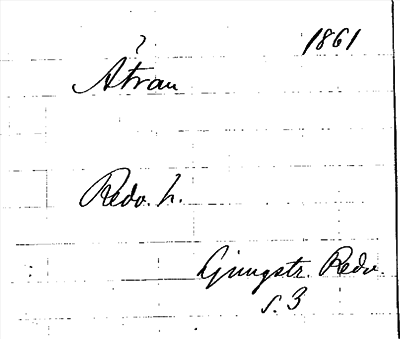 1861
Åtran
Redv. h.
Ljungstr. Redv.
s. 3